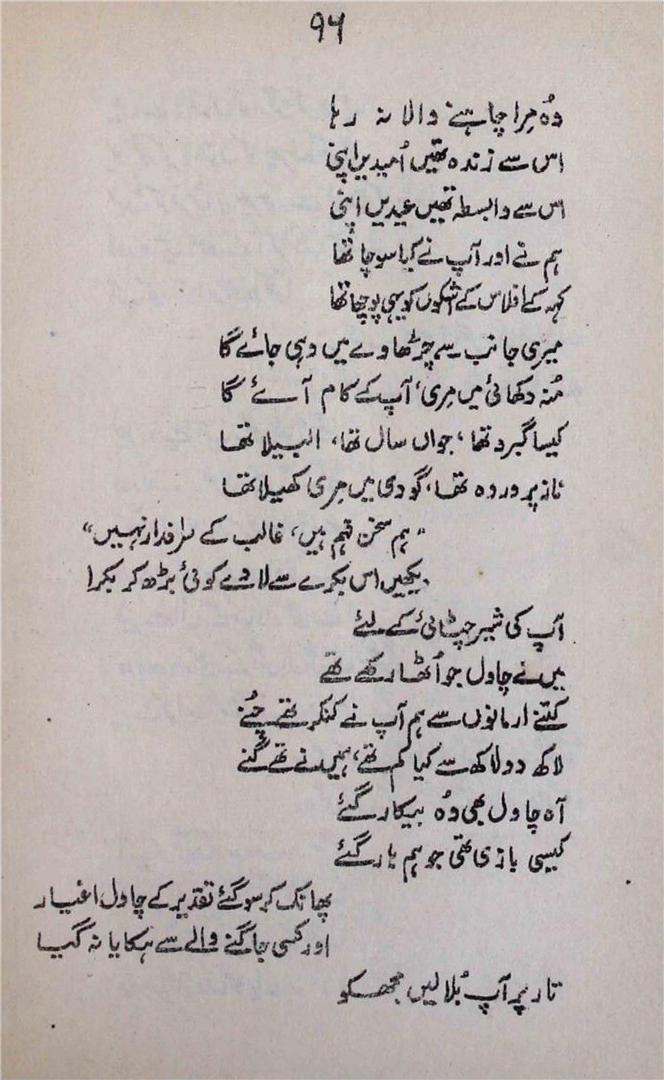 ۹۴
وہ مرا چاہنے والا نہ رہا
اس سے زندہ تھیں اُمیدیں اپنی
اس سے وابستہ تھیں عیدیں اپنی
ہم نے اور آپ نے کیا سوچا تھا
کہہ کے افلاس کے اشکوں کو یہی پوچھا تھا
میری جانب سے چڑھاوے میں وہی جائے گا
مُنہ دکھائی میں مری، آپ کے کام آئے گا
کیسا گبرو تھا، جواں سال تھا، البیلا تھا
ناز پروردہ تھا، گودی میں مری کھیلا تھا
"ہم سخن فہم ہیں، غالب کے طرفدار نہیں"
دیکھیں اس بکرے سے لا دے کوئی بڑھ کر بکرا
آپ کی شیر چٹائی کے لئے
میں نے چاول جو اُٹھا رکھے تھے
کتنے ارمانوں سے ہم آپ نے کنکر تھے چُنے
لاکھ دو لاکھ سے کیا کم تھے، ہمیں نے تھے گنے
آہ چاول بھی وُہ بیکار گئے
کیسی بازی تھی جو ہم ہار گئے
پھانک کر سو گئے تقدیر کے چاول اغیار
اور کسی جاگنے والے سے ہکایا نہ گیا
تار پر آپ بُلا لیں مجھ کو